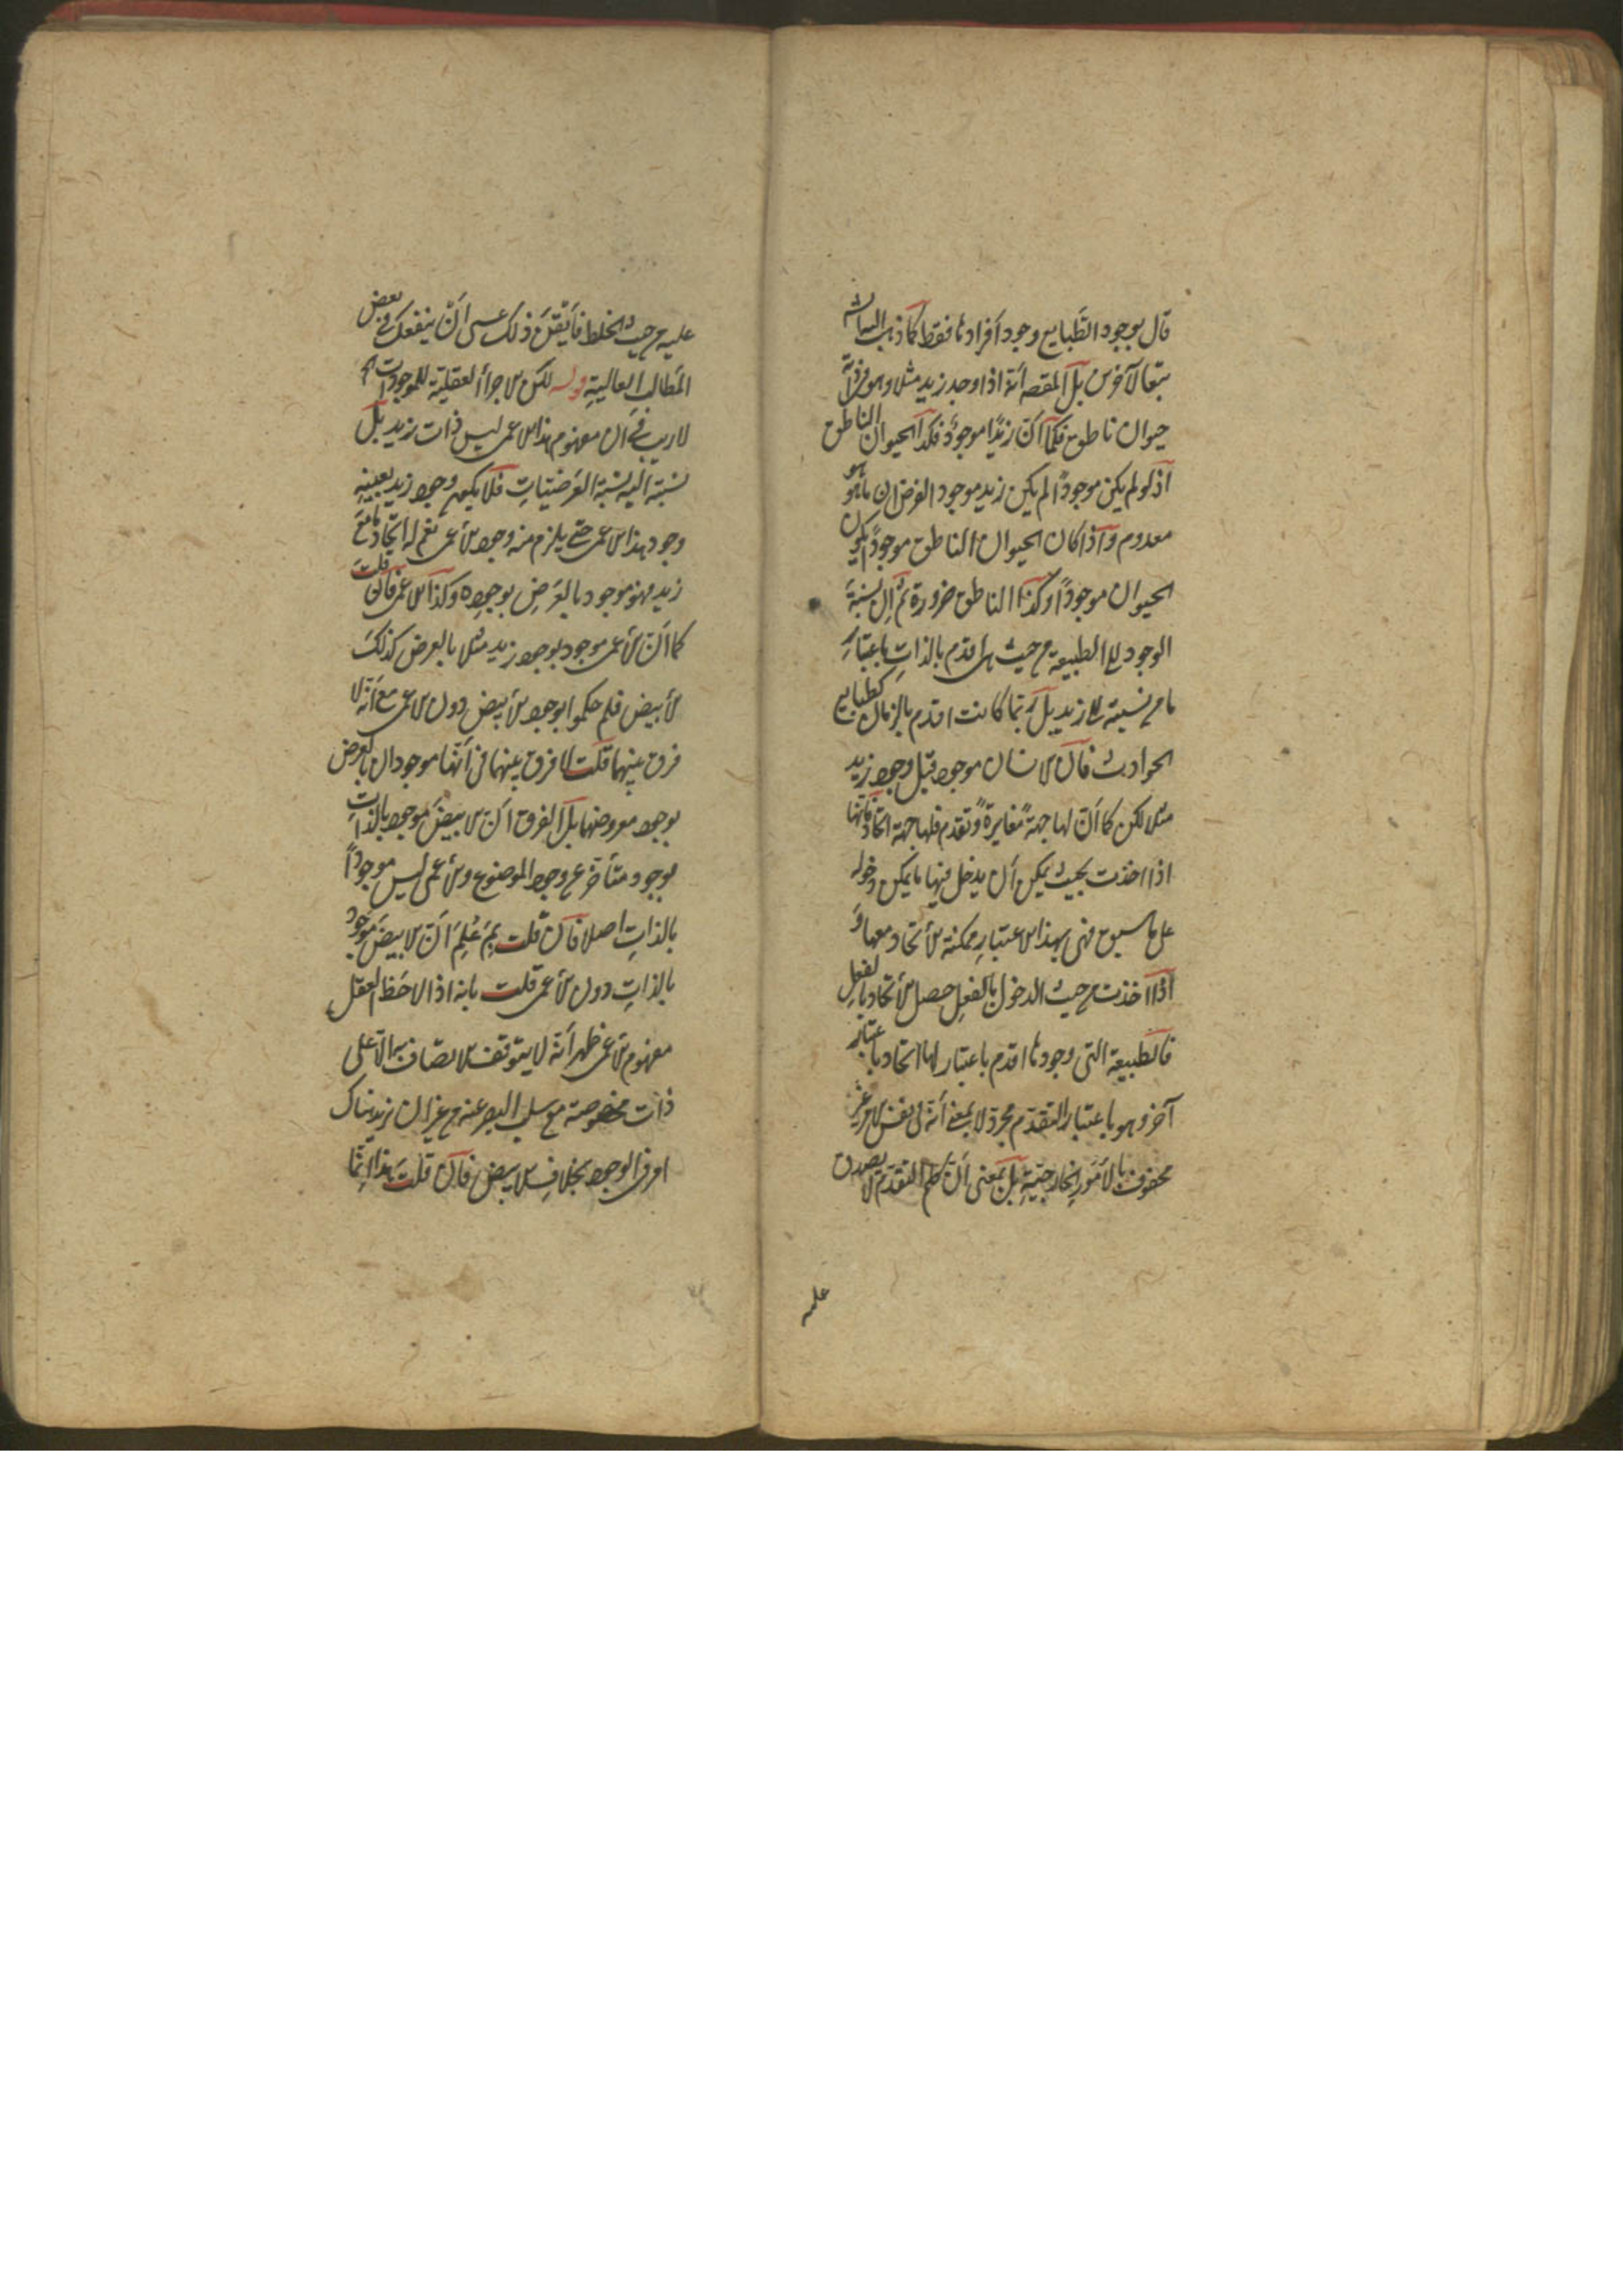 قال بوجود الطَّبايع وجود أفرادها فقط كما ذهب اليه الشه
تبعا لآخرين بل المقصه أنّه اذا وجد زيد مثلا وهو في ذاته
حيوان ناطق فكما أنّ زيدًا موجودٌ فكذا الحيوان الناطق
اذ لو لم يكن موجودًا لم يكن زيد موجودا لفرض ان ما هو هو
معدوم واذا كان الحيوان الناطق موجودًا يكون
الحيوان موجودًا وكذا الناطق ضرورة ثم إن نسبة
الوجود الى الطبيعة من حيث هى اقدم بالذات باعتبارٍ
ما من نسبته الى زيد بل ربّما كانت اقدم بالزمان كطبايع
الحوادث فان الانسان موجود قبل وجود زيد
مثلا لكن كما أنّ لها جهة مغايرةٍ وتقدم فلها جهة اتحاد فانّها
اذا اخذت بحيث يمكن أن يدخل فيها ما يمكن دخوله
على ما سبق فهى بهذا الاعتبارِ ممكنة الأتحاد معها و
اذا اخذت من حيث الدخول بالفعل حصل الأتحاد بالفعل
فالطبيعة التى وجودها اقدم باعتبار لها اتحاد باعتبار
آخر وهو باعتبار التقدم مجرد لا بمعنى أنّه فى نفس الامر غير
محفوف بالأمور الخارجيّة بل بمعنى أنّ حكم التقدم لا يصدق
عليه
عليه من حيث الخلط فأتقن ذلك عسى أنّ ينفعك فى بعض
المطالب العالية قوله لكن الاجزاء العقلية للموجودات اه
لا ريب فى ان مفهوم هذا الاعمى ليس ذات زيد بل
نسبته اليه نسبة العرضيّات فلا يكون وجود زيد بعينه
وجود هذا الاعمى حتى يلزم منه وجود الأعمى نعم له اتحاد ما مع
زيد فهو موجود بالعرض بوجوده وكذا الاعمى فان قلت
كما أنّ الأعمى موجود بوجود زيد مثلا بالعرض كذلك
الأبيض فلم حكموا بوجود الأبيض دون الاعمى مع أنّه لا
فرق بينهما قلت لا فرق بينهما فى أنّهما موجودان بالعرض
بوجود معروضهما بل الفرق أنّ الابيض موجود بالذات
بوجود متأخر عن وجود الموضوع والأعمى ليس موجودًا
بالذات اصلا فان قلت بِمَ عُلِمَ أنّ الابيض موجود
بالذات دون الأعمى قلت بانه اذا لاحظ العقل
مفهوم الأعمى ظهر أنّه لا يتوقف الاتصاف به الّا على
ذات مخصوصة مع سلب البصر عنه من غير ان يزيد هناك
امر فى الوجود بخلاف الابيض فان قلت هذا انّما